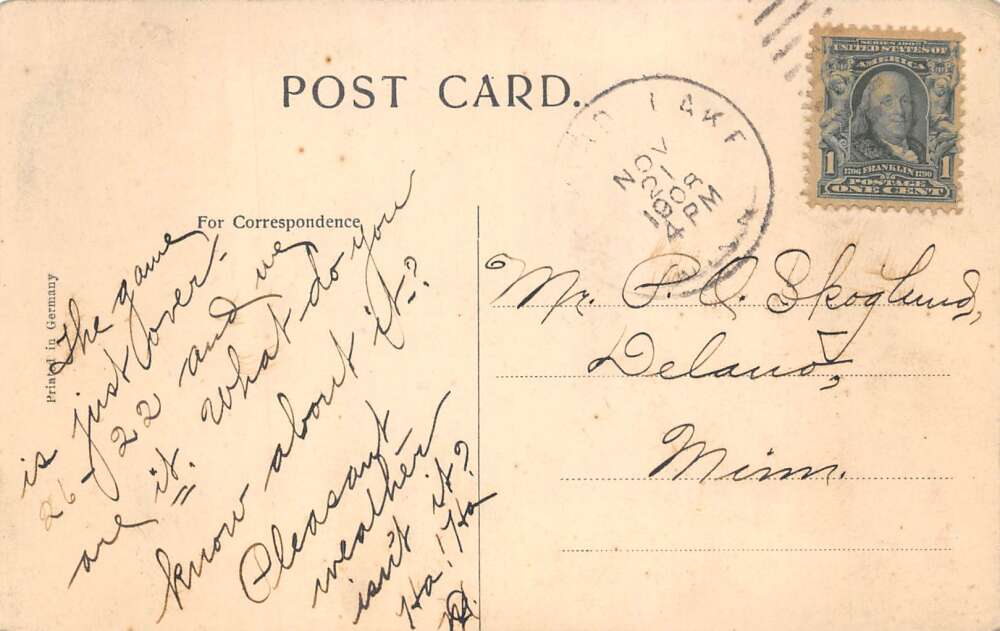 POST CARD.
LAKE
NOV
20
1908
4 PM
MINN
SERIES 1902
UNITED STATES OF
AMERICA
1
1
1706 FRANKLIN 1790
POSTAGE
ONE CENT
For Correspondence
Printed in Germany
The game
is just over-
26-22 and we
are it. What do you
know about it-?
Pleasant
weather
isn't it?
Ha! Ha
Mr. P. O. Skoglund,
Delano,
Minn.